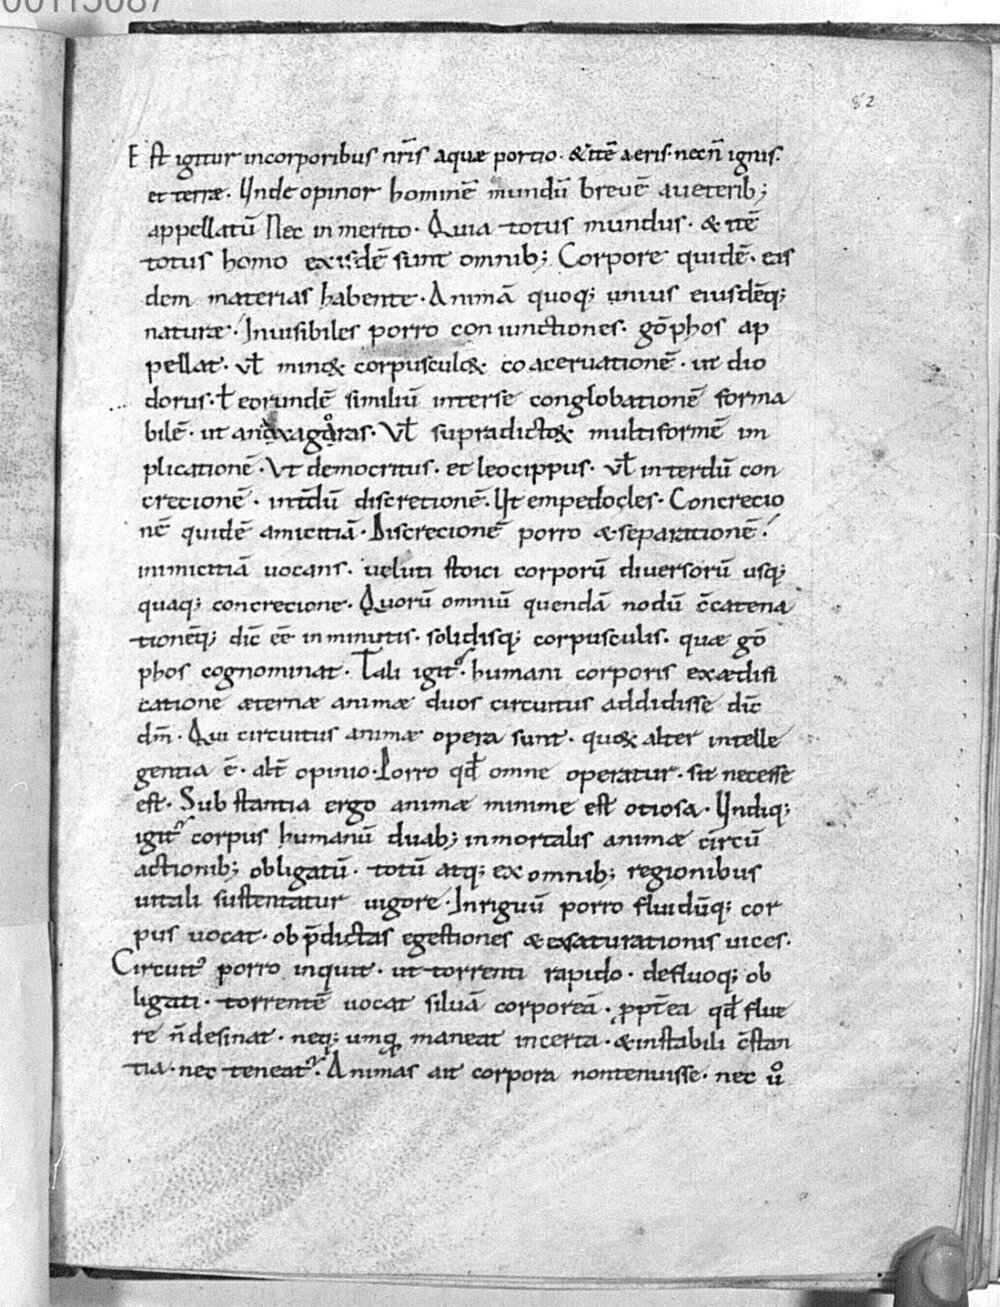 00115087
82
Est igitur incorporibus nr̄is aquæ portio· & itē aeris· necn̄ ignis·
et terræ· Unde opinor hominē mundū brevē aveterib;
appellatū Nec inmerito· Quia totus mundus· & itē
totus homo exisdē sunt omnib; Corpore quidē· eis
dem materias habente· Animā quoq; unius eiusdēq;
naturæ· Invisibiles porro coniunctiones· gōphos ap
pellat· vł minꝙ corpusculꝙ coacervationē· ut dio
dorus· ł eorundē similiū interse conglobationē forma
bilē· ut anaxagoras· Vł supradictoꝝ multiformē im
plicationē· Ut democritus· et leocippus· vł interdū con
crecionē· int̄dū discretionē· Ut empedocles· Concrecio
nē quidē amicitiā· Discrecionē porro & separationē·
inimicitiā vocans· veluti stoici corporū diversorū usq;
quaq; concrecione· Quorū omniū quendā nodū c̄catena
tionēq; dic̄ eē· in minutis· solidisq; corpusculis· quæ gō
phos cognominat· Tali igit᷑· humani corporis exædifi
catione æternæ animæ duos circuitus addidisse dic̄
dm̄· Qui circuitus animæ opera sunt· quoꝝ alter intelle
gentia ē· alt̄ opinio· Porro qđ omne operatur· sit necesse
est· Substantia ergo animæ minime est otiosa· Undiq;
igit᷑ corpus humanū duab; inmortalis animæ circū
actionib; obligatū· totū atq; ex omnib; regionibus
vitali sustentatur vigore· Inriguū porro fluidūq; cor
pus vocat· ob p̄dictas egestiones & exsaturationis vices·
Circuit᷒ porro inquit· ut torrenti rapido· defluoq; ob
ligati· torrentē vocat silvā corporeā· ꝓpt̄ea qđ flue
re n̄ desinat· neq; umꝙ maneat incerta· & instabili c̄stan
tia· nec teneat᷑· Animas ait corpora nontenuisse· nec uͦ